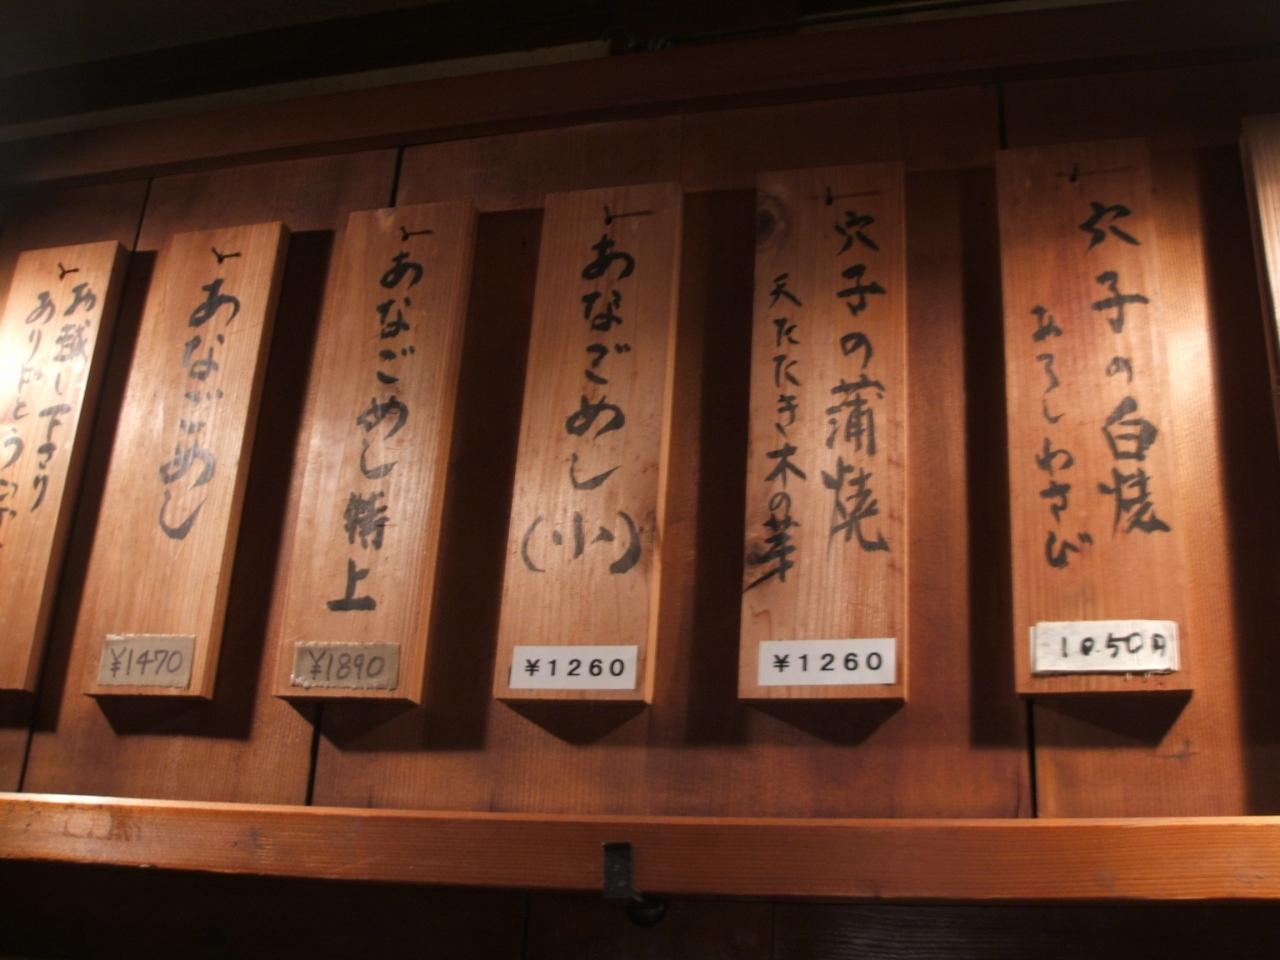 穴子の白焼
おろしわさび
1050円
穴子の蒲焼
天たたき木の芽
¥1260
あなごめし
(小)
¥1260
あなごめし特上
¥1890
あなごめし
¥1470
お越し下さり
ありがとう